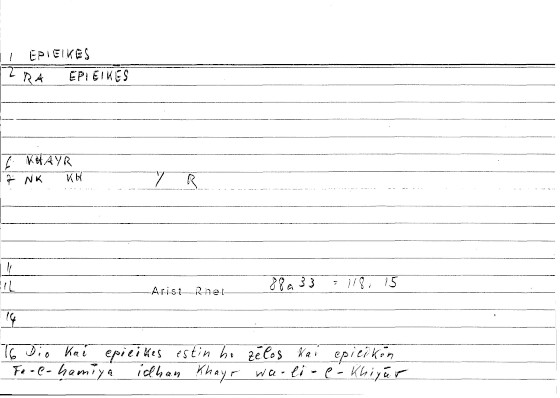 1 EPIEIKES
2 RA EPIEIKES
6 KHAYR
7 NK KH Y R
11
12 Arist Rhet 88a33 = 118, 15
14
16 Dio kai epieikes estin ho zēlos kai epieikōn
Fa-l-ḥamīya idhan khayr wa-li-l-khiyār